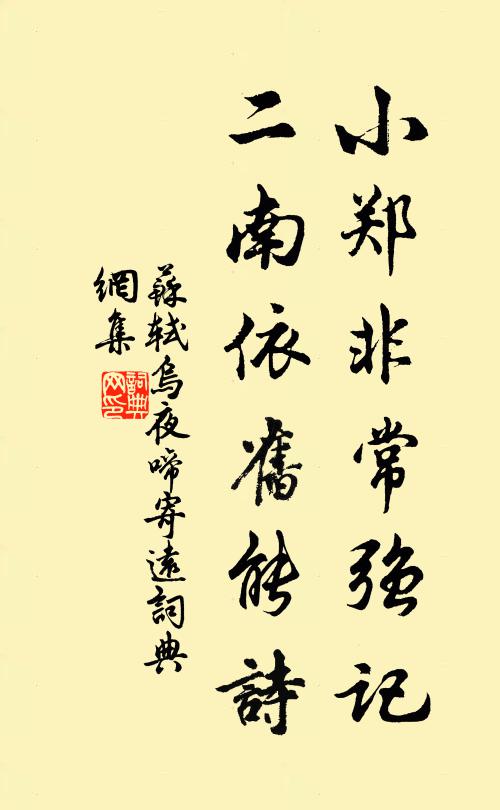 小郑非常强记
二南依舊能詩
蘇軾烏夜啼寄遠詞典
網集
詞典
网印